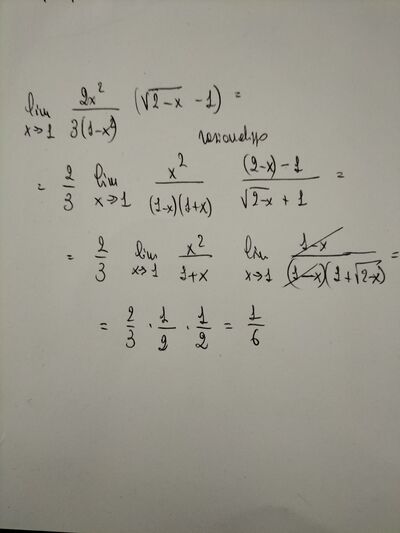 lim x→1 2x² / 3(1-x²) (√2-x - 1) =
= 2/3 lim x→1 x² / (1-x)(1+x) (2-x)-1 / √2-x + 1 =
= 2/3 lim x→1 x² / 1+x lim x→1 1-x / (1-x)(1+√2-x) =
= 2/3 · 1/2 · 1/2 = 1/6